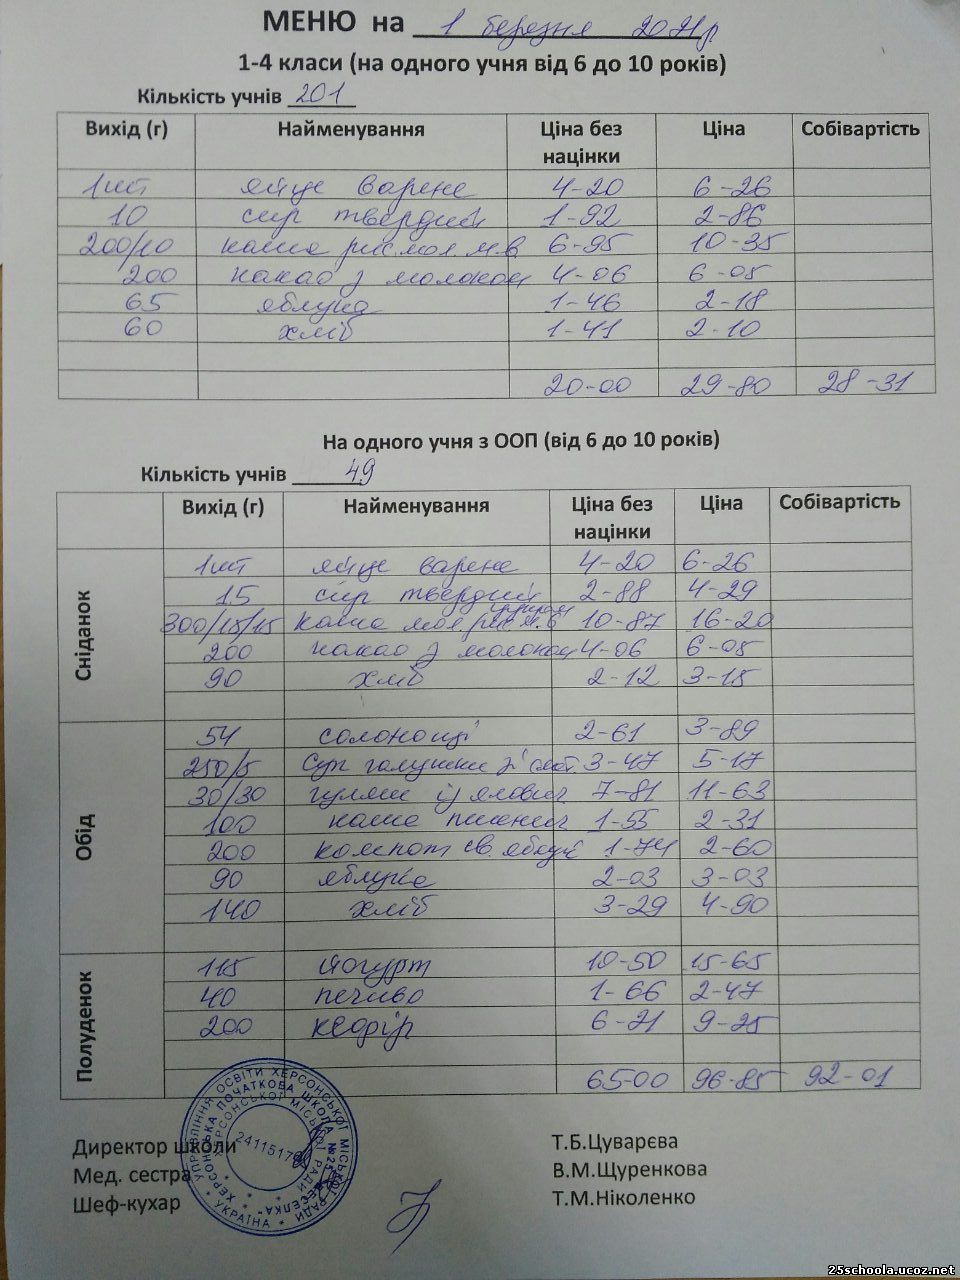 МЕНЮ на 1 березня 2021р.
1-4 класи (на одного учня від 6 до 10 років)
Кількість учнів 201
Вихід (г) Найменування Ціна без націнки Ціна Собівартість
1шт яйце варене 4-20 6-26
10 сир твердий 1-92 2-86
200/10 каша рис.мол. м.в 6-95 10-35
200 какао з молоком 4-06 6-05
65 яблуко 1-46 2-18
60 хліб 1-41 2-10
20-00 29-80 28-31
На одного учня з ООП (від 6 до 10 років)
Кількість учнів 49
Вихід (г) Найменування Ціна без націнки Ціна Собівартість
Сніданок
1шт яйце варене 4-20 6-26
15 сир твердий 2-88 4-29
300/15/15 каша мол. рис м.в 10-87 16-20
200 какао з молоком 4-06 6-05
90 хліб 2-12 3-15
Обід
54 солонощі 2-61 3-89
250/5 Суп галушки зі смет. 3-47 5-17
30/30 гуляш із ялович. 7-81 11-63
100 каша пшенич 1-55 2-31
200 компот св. яблук 1-74 2-60
90 яблуко 2-03 3-03
140 хліб 3-29 4-90
Полуденок
115 йогурт 10-50 15-65
40 печиво 1-66 2-47
200 кефір 6-21 9-25
65-00 96-85 92-01
Директор школи Т.Б.Цуварєва
Мед. сестра В.М.Щуренкова
Шеф-кухар Т.М.Ніколенко
УПРАВЛІННЯ ОСВІТИ ХЕРСОНСЬКОЇ МІСЬКОЇ РАДИ * УКРАЇНА *
ХЕРСОНСЬКА ПОЧАТКОВА ШКОЛА №25
ХЕРСОНСЬКОЇ МІСЬКОЇ РАДИ
25schoola.ucoz.net